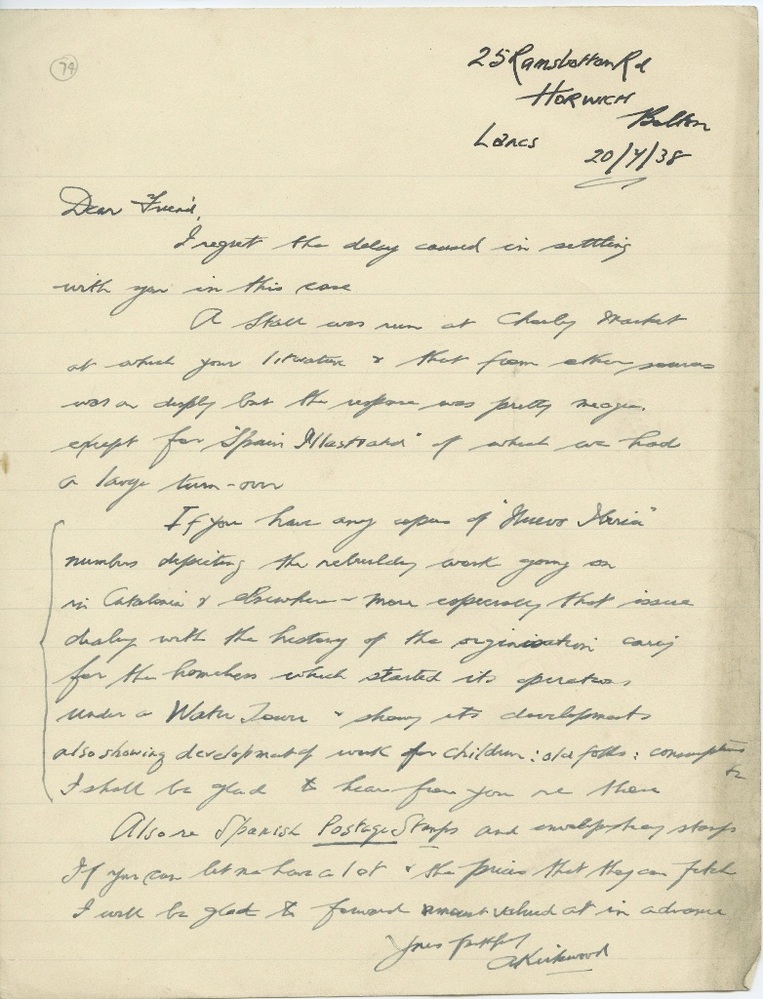 74
25 Ramsbottom Rd
HORWICH
Bolton
Lancs
20/7/38
Dear Friend,
I regret the delay caused in settling
with you in this case
A Stall was run at Chorley Market
at which your literature & that from other sources
was on display but the response was pretty meagre.
except for "Spain Illustrated" of which we had
a large turn-over
If you have any copies of "Nuevo Iberia"
numbers depicting the rebuilding work going on
in Catalonia & Elsewhere - more especially that issue
dealing with the history of the orginisation caring
for the homeless which started its operations
under a Water Tower & shows its developments
also showing development of work for children: old folks: consumptives
&c
I shall be glad to hear from you re these
Also re Spanish Postage Stamps and stamps
If you can let me have a lot & the prices that they can fetch
I will be glad to forward amount valued at in advance
Yours faithfully
A Kirkwood